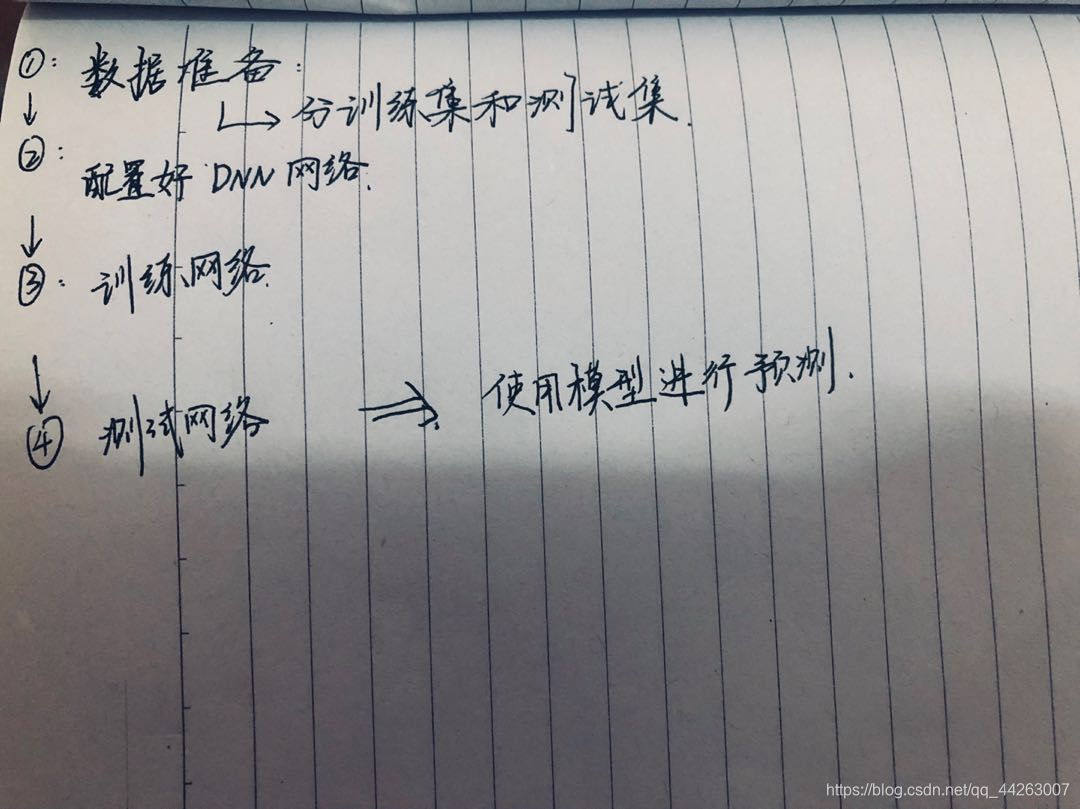 ①: 数据准备:
↓ ↳ 分训练集和测试集.
②: 配置好 DNN 网络.
↓
③: 训练网络.
↓
④ 测试网络 ⇒ 使用模型进行预测.
https://blog.csdn.net/qq_44263007